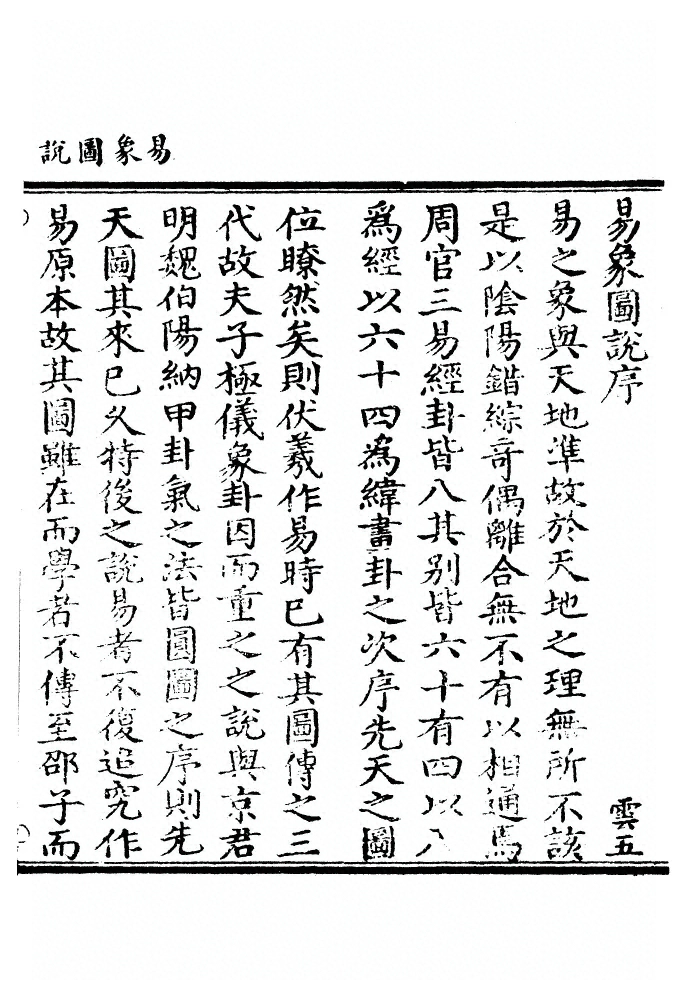 易象圖說
易象圖說序
雲五
易之象與天地準故於天地之理無所不該
是以陰陽錯綜奇偶離合無不有以相通焉
周官三易經卦皆八其別皆六十有四以八
為經以六十四為緯畫卦之次序先天之圖
位瞭然矣則伏羲作易時已有其圖傳之三
代故夫子極儀象卦因而重之之說與京君
明魏伯陽納甲卦氣之法皆圓圖之序則先
天圖其來已久特後之說易者不復追究作
易原本故其圖雖在而學者不傳至邵子而